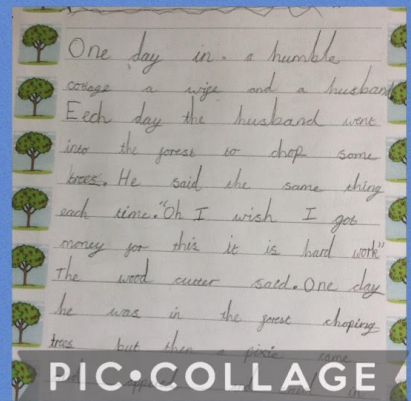 One day in a humble
cottage a wife and a husband
Eech day the husband went
into the forest to chop some
trees. He said the same thing
each time. "Oh I wish I got
money for this it is hard work"
The wood cutter said. One day
he was in the forest choping
trees but then a pixie came
PIC•COLLAGE